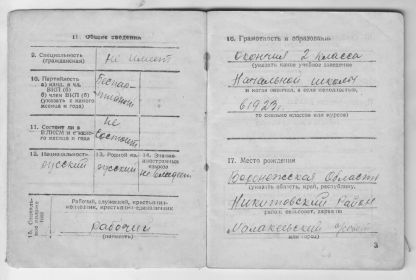 II. Общие сведения
9. Специальность
(гражданская)
не имеет
10. Партийность
а) канд. в чл.
ВКП (б)
б) член ВКП (б)
(указать с какого
месяца и года)
Беспар-
тийный
11. Состоит ли в
ВЛКСМ и с како-
го месяца и года
не
состоит
12. Национальность
русский
13. Родной яз.
русский
14. Знание
иностранных
языков
не владеет
15. Социаль-
ное
Рабочий, служащий, крестьянин-
колхозник, крестьянин-единоличник
рабочий
(написать)
16. Грамотность и образование
Окончил 2 класса
(указать какое учебное заведение
Начальной школы
и когда окончил, а если неполностью,
в 1923 г.
то сколько классов или курсов)
17. Место рождения
Воронежская Область
(указать область, край, республику,
Никитовский район
район, сельсовет, деревню
или город)
3